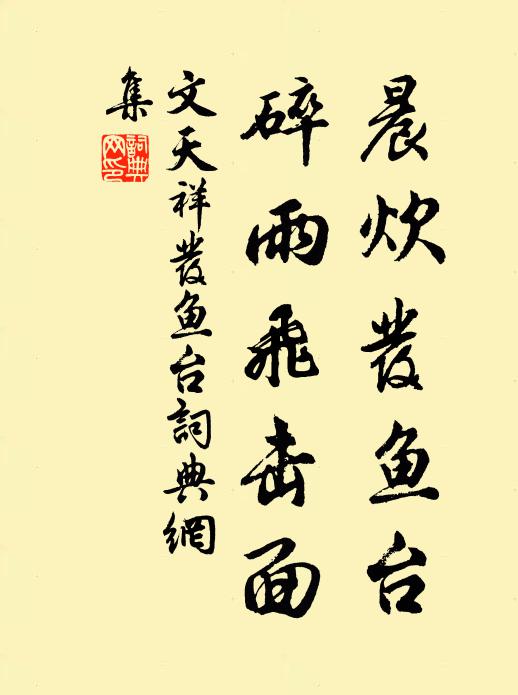 晨炊發鱼台
碎雨飛击面
文天祥發鱼台詞典網
集
詞典网印